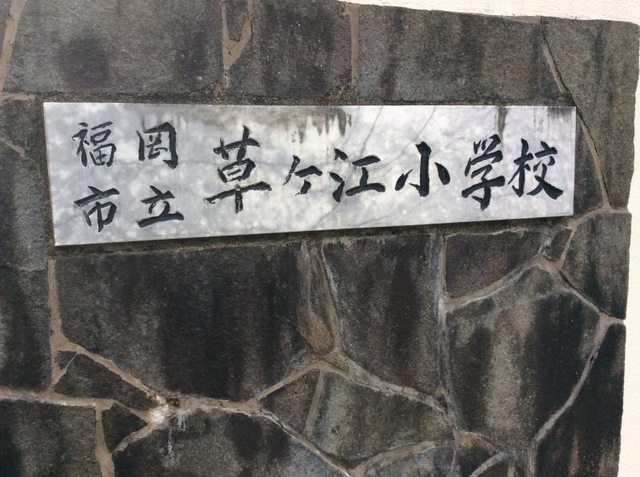 福岡
市立
草ヶ江小学校